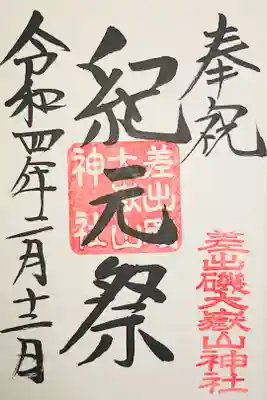 奉祝
差出磯大嶽山神社
紀元祭
差出磯大嶽山神社
令和四年二月十二日